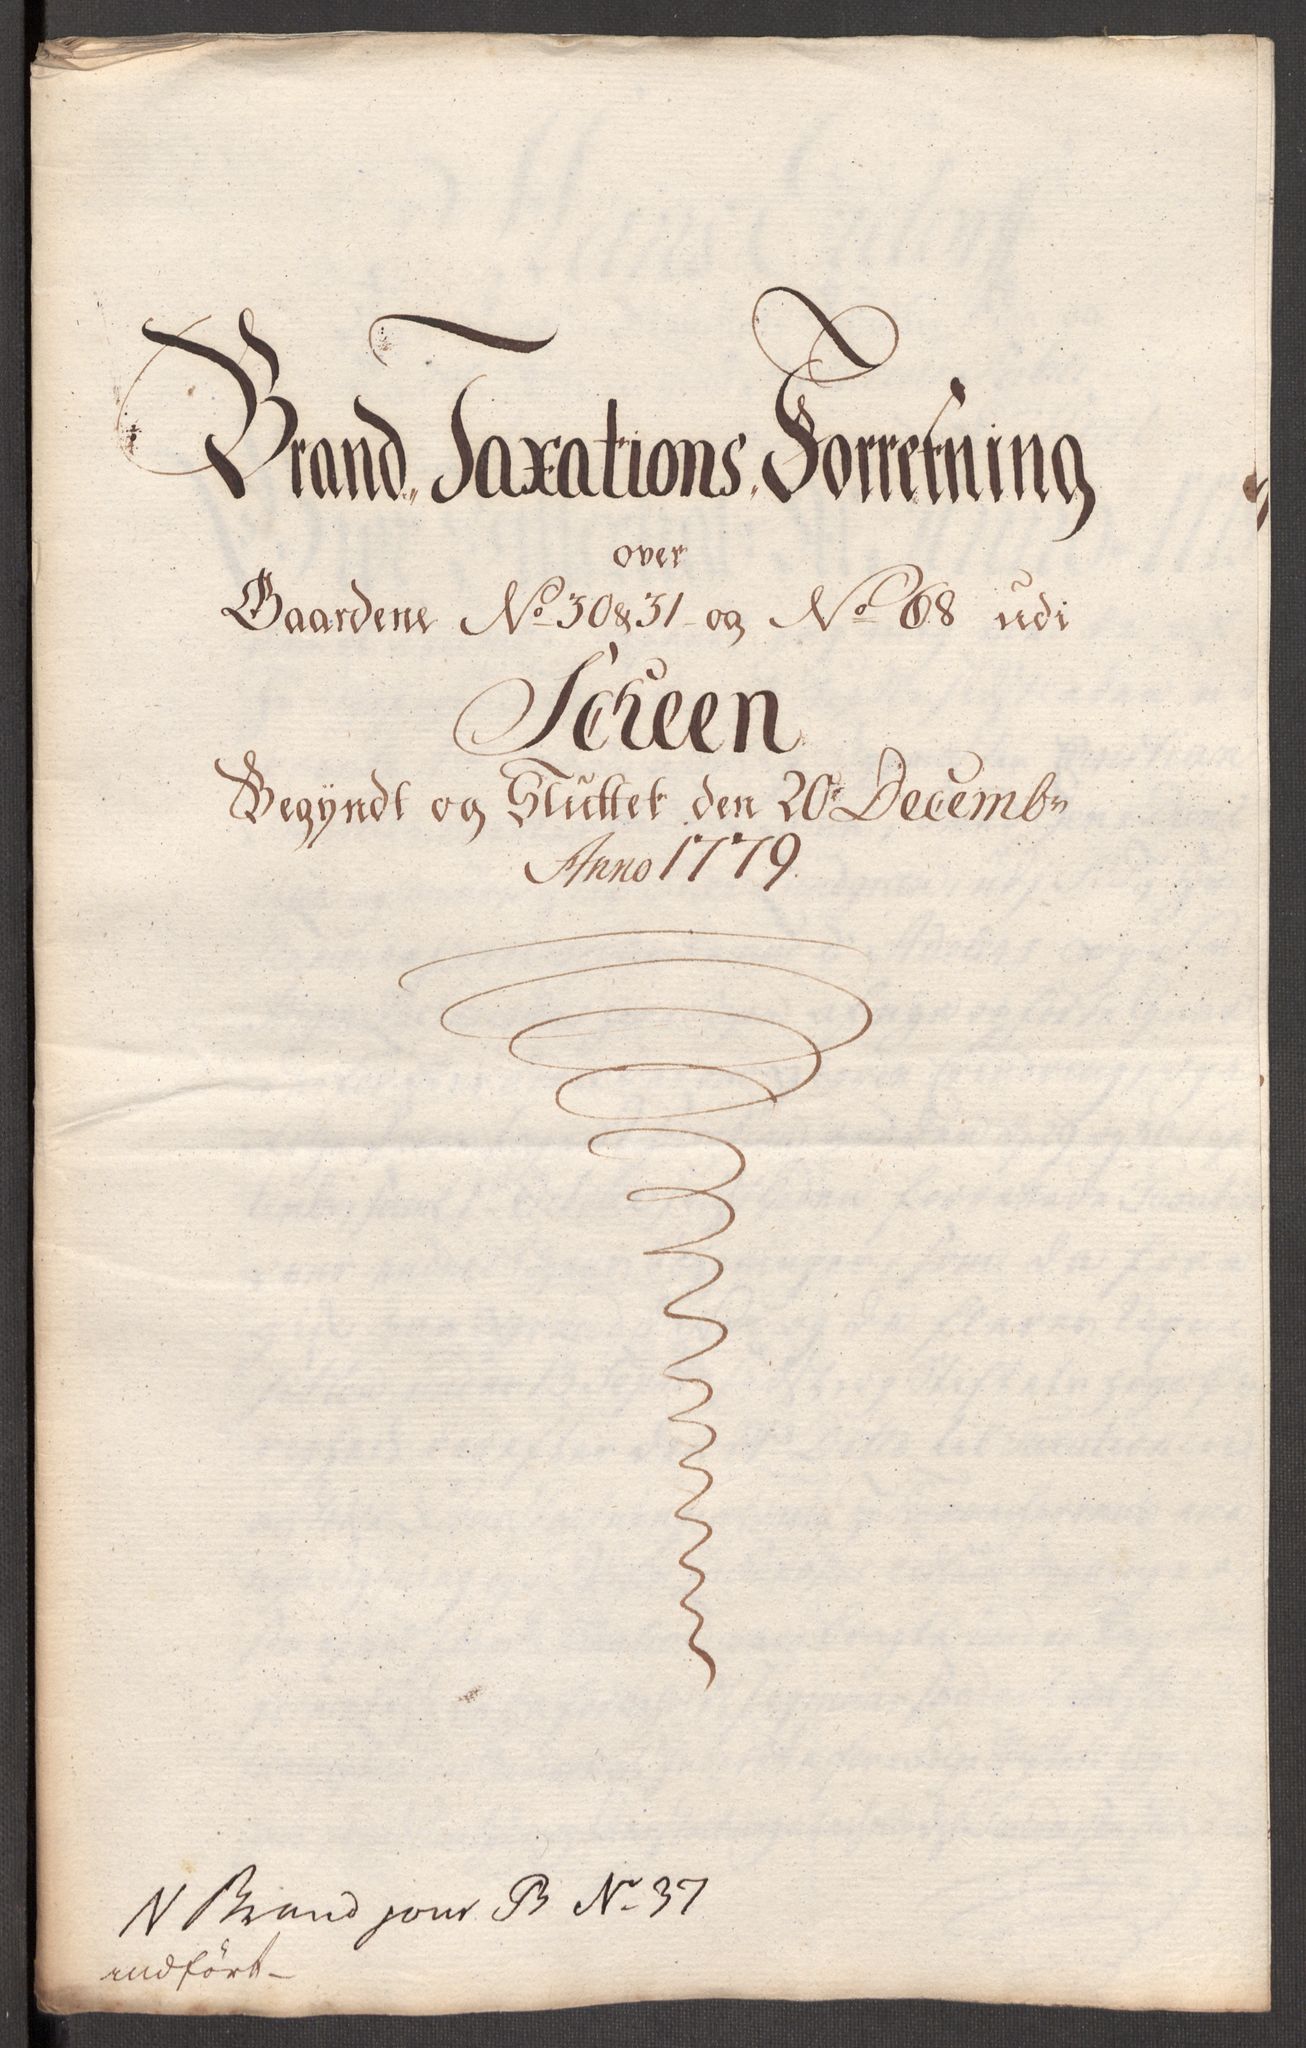 Brand, Taxations, Forretning
over
Gaardene No 30 & 31 og No 68 udi
Scheen
Begÿndt og Sluttet den 20de Decembr
Anno 1779.
N Brand jour B No 37
indført